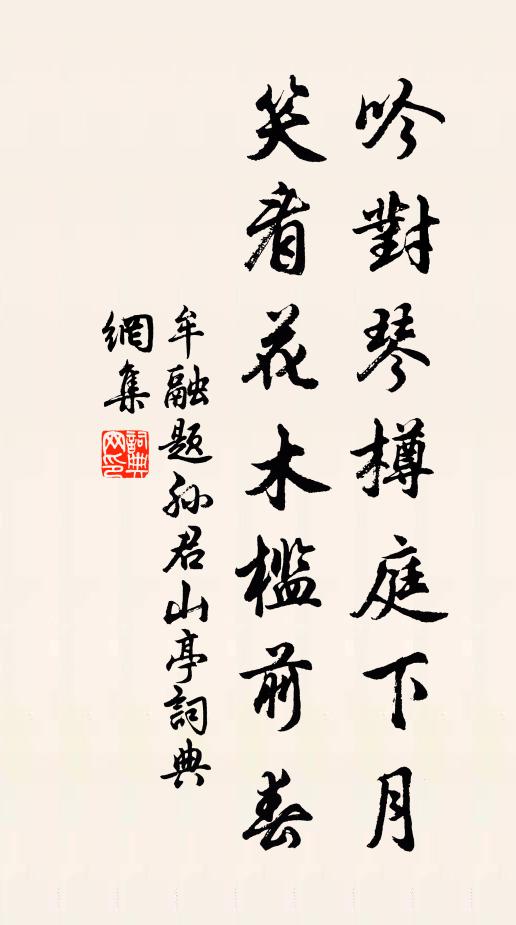 吟對琴樽庭下月
笑看花木檻前春
牟融題孙君山亭詞典
網集
詞典网印